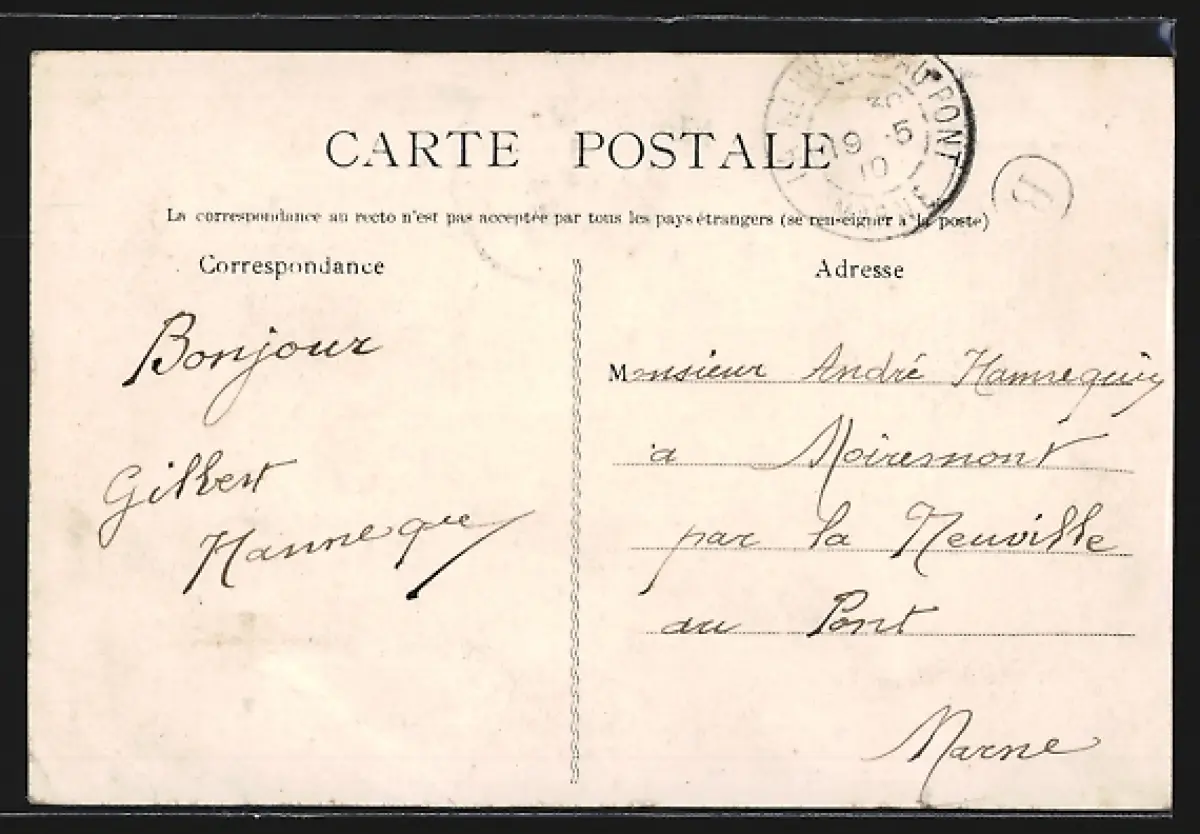 CARTE POSTALE
La correspondance au recto n'est pas acceptée par tous les pays étrangers (se renseigner à la poste)
Correspondance
Bonjour
Gilbert
Adresse
Monsieur André Hannequin
à Moiremont
par la Neuville
au Pont
Marne
LA NEUVILLE-AU-PONT
30
19 -5
10
MARNE
B